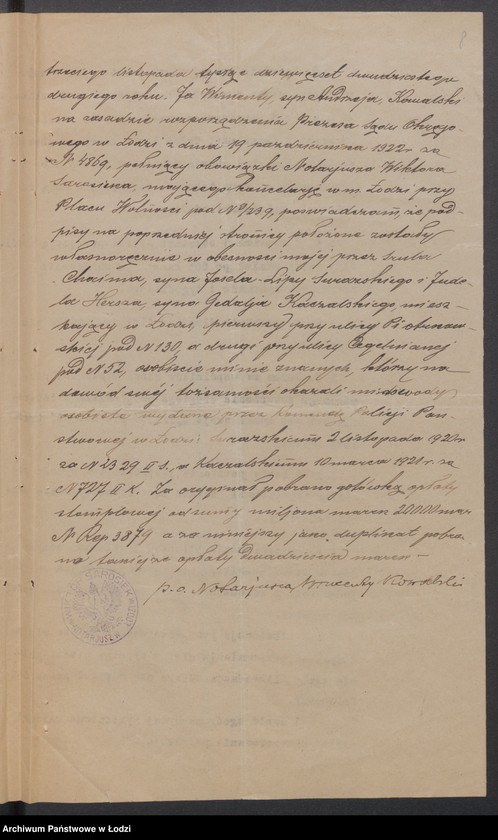 8
trzeciego listopada tysiąc dziewięćset dwudziestego
drugiego roku. Ja Wincenty, syn Andrzeja, Kowalski
na zasadzie rozporządzenia Prezesa Sądu Okręgo-
wego w Łodzi z dnia 19 października 1922 r za
N 4869, pełniący obowiązki Notarjusza Wiktora
Sarosieka, mającego kancelarję w m. Łodzi przy
Placu Wolności pod N 239, poświadczam, że pod-
pisy na poprzedniej stronicy położone zostały
własnoręcznie w obecności mojej przez Szulima
Chaima, syna Josela-Lipy Surazskiego i Jude-
la Hersza, syna Gedalja Kaczalskiego, miesz-
kających w Łodzi, pierwszy przy ulicy Piotrkow-
skiej pod N 130, a drugi przy ulicy Cegielnianej
pod N 52, osobiście mi nie znanych, którzy na
dowód swej tożsamości okazali mi dowody
osobiste wydane przez Komendę Policji Pań-
stwowej w Łodzi Surazskiemu 2 listopada 1920 r
za N 2329 II S, a Kaczalskiemu 10 marca 1921 r. za
N 727 II K. Za oryginał pobrano gotówką opłaty
stemplowej od sumy miljona marek 20000 mar
N Rep 3879 a za niniejszy jako duplikat pobra-
no tamejże opłaty dwadzieścia marek -
p.o. Notarjusza Wincenty Kowalski
Archiwum Państwowe w Łodzi